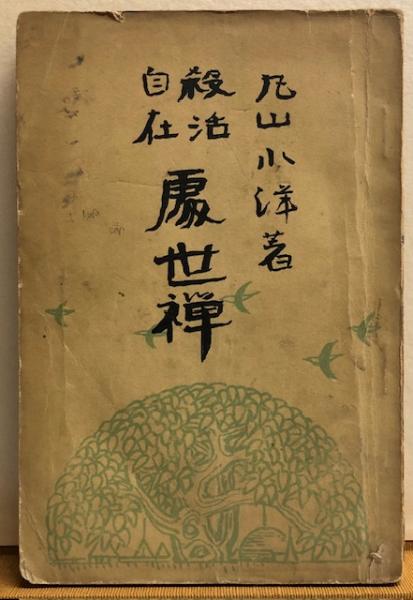 丸山小洋著
殺活
自在
處世禅